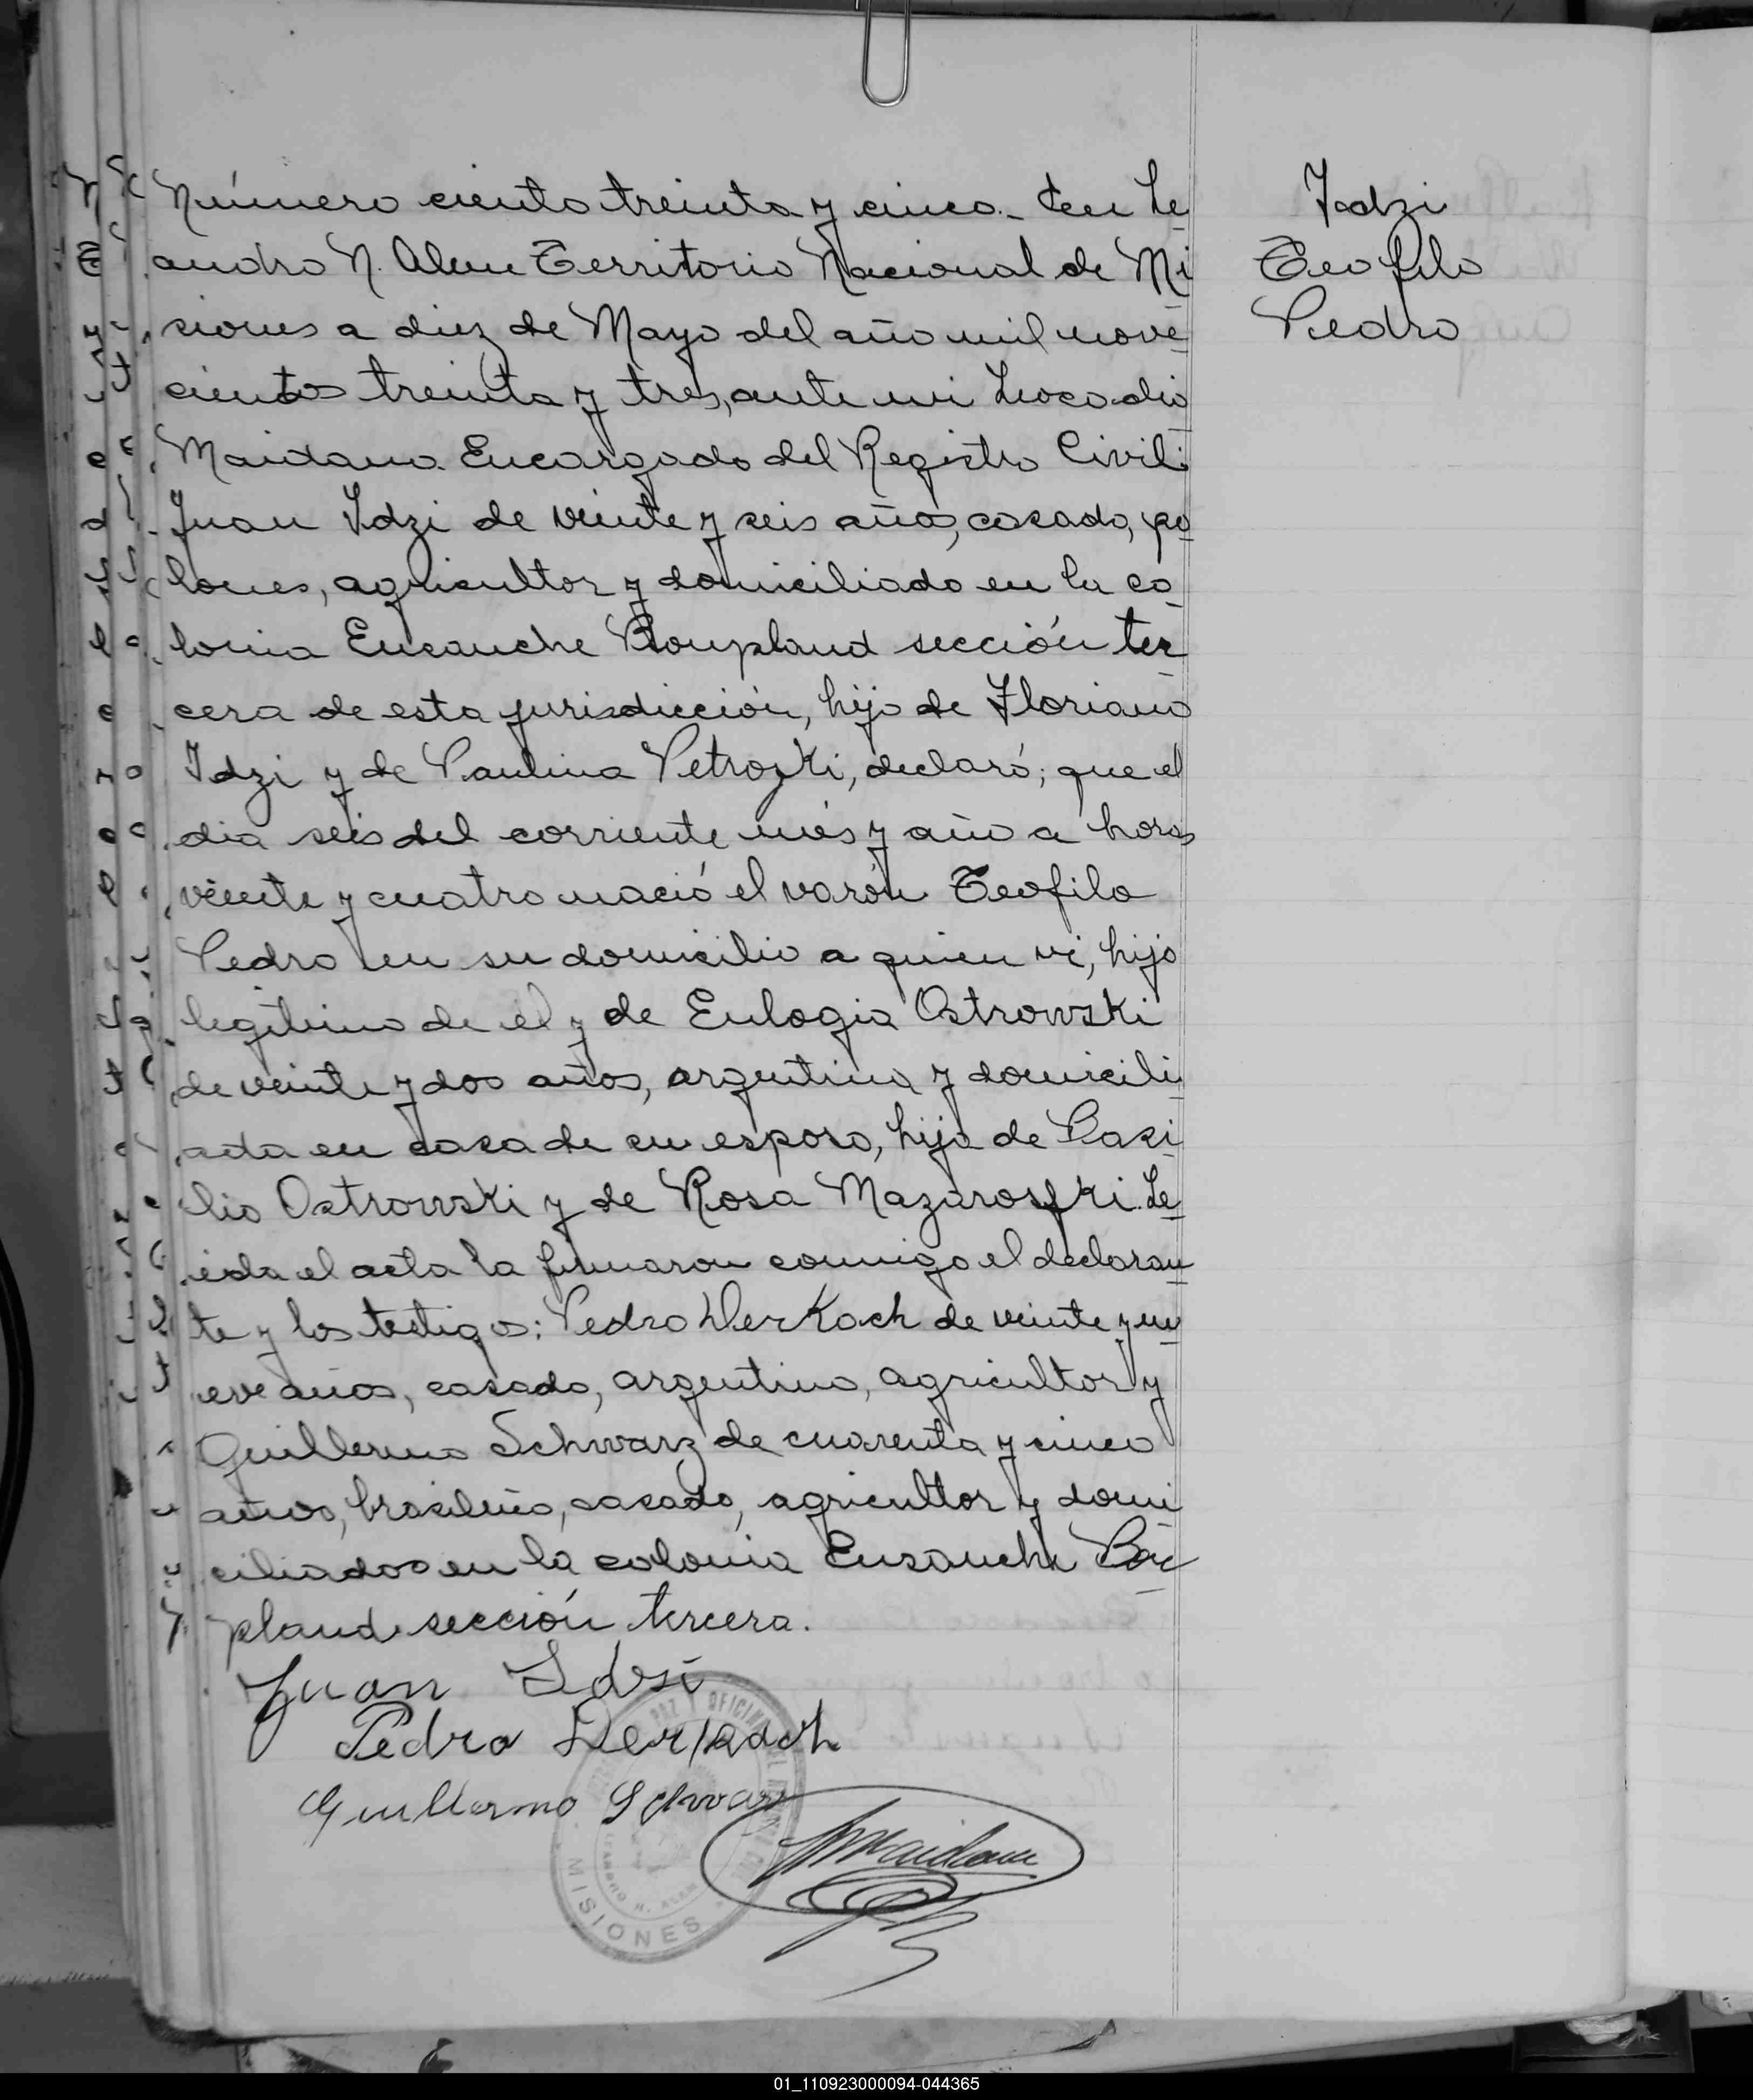 Número ciento treinta y cinco.- En Le
andro N. Alem Territorio Nacional de Mi
siones a diez de Mayo del año mil nove
cientos treinta y tres, ante mi Leocadio
Maidana Encargado del Registro Civil:
Juan Idzi de veinte y seis años, casado, po
lones, agricultor y domiciliado en la co
lonia Ensanche Bonpland sección ter
cera de esta jurisdicción, hijo de Floriano
Idzi y de Paulina Petrozki, declaró; que el
dia seis del corriente mes y año a horas
veinte y cuatro nació el varón Teofilo
Pedro en su domicilio a quien vi, hijo
legitimo de el y de Eulogia Ostrowski
de veinte y dos años, argentina y domicili
ada en casa de su esposo, hija de Basi
lio Ostrowski y de Rosa Mazaroski. Le
ida el acta la firmaron conmigo el declaran
te y los testigos: Pedro DerKach de veinte y nu
eve años, casado, argentino, agricultor y
Guillermo Schwarz de cuarenta y cinco
años, brasileño, casado, agricultor y domi
ciliados en la colonia Ensanche Bon
pland sección tercera.
Juan Idzi
Pedro Derkach
Guillermo Schwarz
Idzi
Teofilo
Pedro
MISIONES
01_110923000094-044365